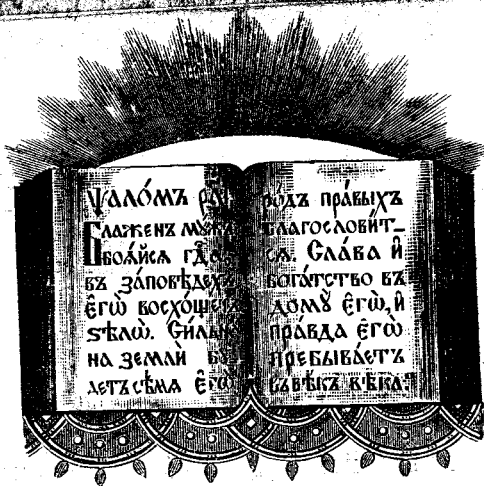 Ѱало́мъ
Блаже́нъ мꙋ́жъ
боѧ́йсѧ гдⷭ҇а
въ за́повѣдехъ
є҆гѡ̀ восхо́щетъ
ѕѣлѡ̀. Си́льно
на землѝ бꙋ́
детъ сѣ́мѧ є҆гѡ̀
ро́дъ пра́выхъ
благослови́т–
сѧ. Сла́ва и҆
бога́тство въ
домꙋ̀ є҆гѡ̀, и҆
пра́вда є҆гѡ̀
пребыва́етъ
въ вѣ́къ вѣ́ка